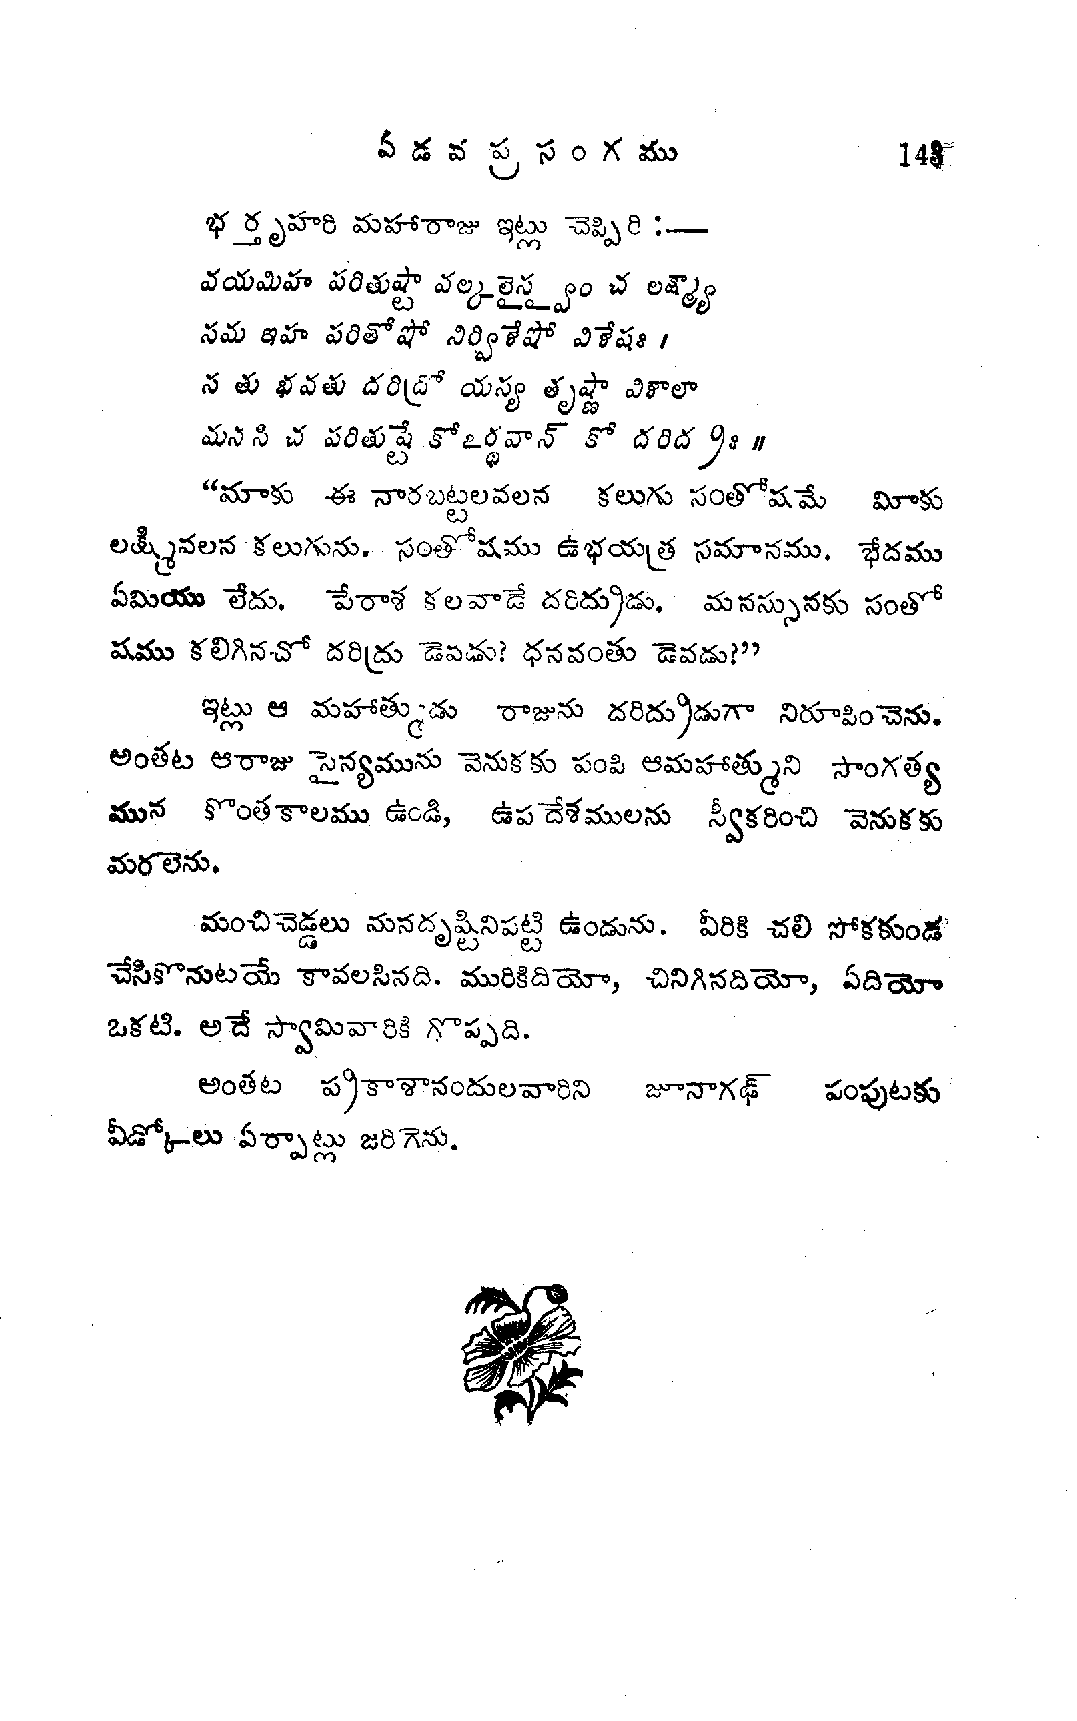 ఏడవ ప్రసంగము 143
భర్తృహరి మహారాజు ఇట్లు చెప్పిరి :—
వయమిహ పరితుష్టా వల్కలైస్త్వం చ లక్ష్మ్యా
సమ ఇహ పరితోషో నిర్విశేషో విశేషః ।
న తు భవతు దరిద్రో యస్య తృష్ణా విశాలా
మనసి చ పరితుష్టే కోఽర్థవాన్ కో దరిద్రః ॥
“మాకు ఈ నారబట్టలవలన కలుగు సంతోషమే మీకు
లక్ష్మివలన కలుగును. సంతోషము ఉభయత్ర సమానము. భేదము
ఏమియు లేదు. పేరాశ కలవాడే దరిద్రుడు. మనస్సునకు సంతో
షము కలిగినచో దరిద్రు డెవడు? ధనవంతు డెవడు?”
ఇట్లు ఆ మహాత్ముడు రాజును దరిద్రుడుగా నిరూపించెను.
అంతట ఆరాజు సైన్యమును వెనుకకు పంపి ఆమహాత్ముని సాంగత్య
మున కొంతకాలము ఉండి, ఉపదేశములను స్వీకరించి వెనుకకు
మరలెను.
మంచిచెడ్డలు మనదృష్టినిపట్టి ఉండును. వీరికి చలి సోకకుండ
చేసికొనుటయే కావలసినది. మురికిదియో, చినిగినదియో, ఏదియో
ఒకటి. అదే స్వామివారికి గొప్పది.
అంతట ప్రకాశానందులవారిని జూనాగఢ్ పంపుటకు
వీడ్కోలు ఏర్పాట్లు జరిగెను.